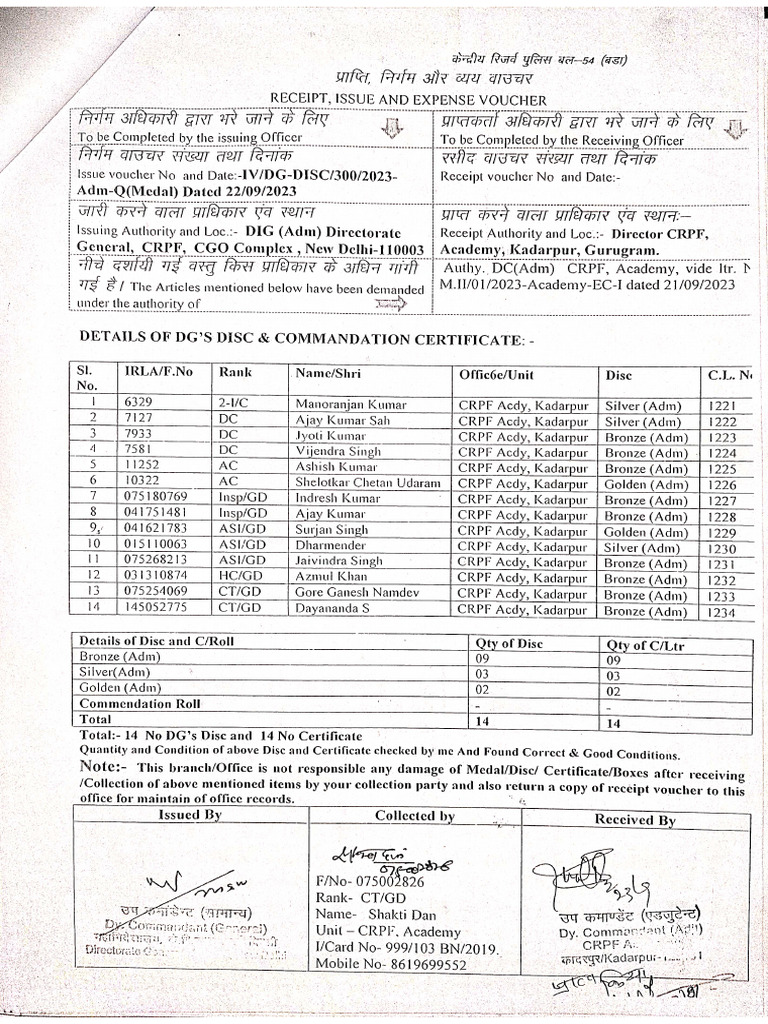 केन्द्रीय रिजर्व पुलिस बल–54 (बडा)
प्राप्ति, निर्गम और व्यय वाउचर
RECEIPT, ISSUE AND EXPENSE VOUCHER
निर्गम अधिकारी द्वारा भरे जाने के लिए
To be Completed by the issuing Officer
प्राप्तकर्ता अधिकारी द्वारा भरे जाने के लिए
To be Completed by the Receiving Officer
निर्गम वाउचर संख्या तथा दिनांक
Issue voucher No and Date:-IV/DG-DISC/300/2023-
Adm-Q(Medal) Dated 22/09/2023
रसीद वाउचर संख्या तथा दिनांक
Receipt voucher No and Date:-
जारी करने वाला प्राधिकार एंव स्थान
Issuing Authority and Loc:- DIG (Adm) Directorate
General, CRPF, CGO Complex , New Delhi-110003
प्राप्त करने वाला प्राधिकार एंव स्थान:–
Receipt Authority and Loc:- Director CRPF,
Academy, Kadarpur, Gurugram.
नीचे दर्शायी गई वस्तु किस प्राधिकार के अधिन गांगी
गई है। The Articles mentioned below have been demanded
under the authority of
Authy. DC(Adm) CRPF, Academy, vide ltr. N
M.II/01/2023-Academy-EC-I dated 21/09/2023
DETAILS OF DG'S DISC & COMMANDATION CERTIFICATE: -
Sl. No. IRLA/F.No Rank Name/Shri Offic6e/Unit Disc C.L. No
1 6329 2-I/C Manoranjan Kumar CRPF Acdy, Kadarpur Silver (Adm) 1221
2 7127 DC Ajay Kumar Sah CRPF Acdy, Kadarpur Silver (Adm) 1222
3 7933 DC Jyoti Kumar CRPF Acdy, Kadarpur Bronze (Adm) 1223
4 7581 DC Vijendra Singh CRPF Acdy, Kadarpur Bronze (Adm) 1224
5 11252 AC Ashish Kumar CRPF Acdy, Kadarpur Bronze (Adm) 1225
6 10322 AC Shelotkar Chetan Udaram CRPF Acdy, Kadarpur Golden (Adm) 1226
7 075180769 Insp/GD Indresh Kumar CRPF Acdy, Kadarpur Bronze (Adm) 1227
8 041751481 Insp/GD Ajay Kumar CRPF Acdy, Kadarpur Bronze (Adm) 1228
9 041621783 ASI/GD Surjan Singh CRPF Acdy, Kadarpur Golden (Adm) 1229
10 015110063 ASI/GD Dharmender CRPF Acdy, Kadarpur Silver (Adm) 1230
11 075268213 ASI/GD Jaivindra Singh CRPF Acdy, Kadarpur Bronze (Adm) 1231
12 031310874 HC/GD Azmul Khan CRPF Acdy, Kadarpur Bronze (Adm) 1232
13 075254069 CT/GD Gore Ganesh Namdev CRPF Acdy, Kadarpur Bronze (Adm) 1233
14 145052775 CT/GD Dayananda S CRPF Acdy, Kadarpur Bronze (Adm) 1234
Details of Disc and C/Roll Qty of Disc Qty of C/Ltr
Bronze (Adm) 09 09
Silver(Adm) 03 03
Golden (Adm) 02 02
Commendation Roll - -
Total 14 14
Total:- 14 No DG's Disc and 14 No Certificate
Quantity and Condition of above Disc and Certificate checked by me And Found Correct & Good Conditions.
Note:- This branch/Office is not responsible any damage of Medal/Disc/ Certificate/Boxes after receiving
/Collection of above mentioned items by your collection party and also return a copy of receipt voucher to this
office for maintain of office records.
Issued By
उप कमांडेन्ट (सामान्य)
Dy. Commandant (General)
Collected by
075002826
F/No- 075002826
Rank- CT/GD
Name- Shakti Dan
Unit – CRPF. Academy
I/Card No- 999/103 BN/2019.
Mobile No- 8619699552
Received By
उप कमाण्डेंट (एडजुटेन्ट)
Dy. Commandant (Adj)
CRPF
कादरपुर/Kadarpur